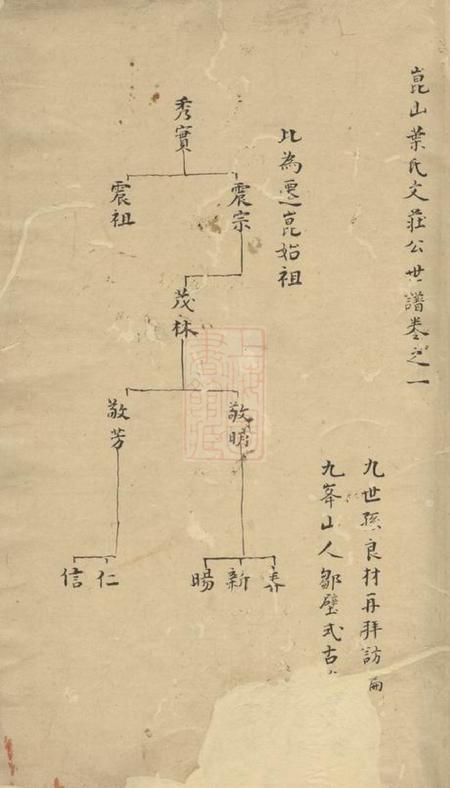 崑山葉氏文莊公世譜卷之一
九世孫良材再拜訪
九峯山人鄒璧式古
此為遷崑始祖
秀實
震宗
震祖
茂林
敬明
敬芳
春
新
暘
仁
信